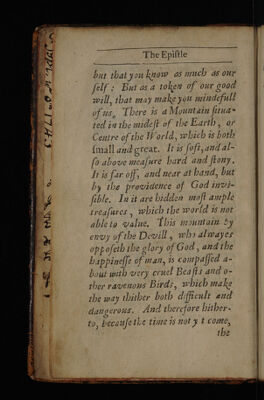 The Epistle
but that you know as much as our
self: But as a token of our good
will, that may make you mindefull
of us. There is a Mountain situa-
ted in the midest of the Earth, or
Centre of the World, which is both
small and great. It is soft, and al-
so above measure hard and stony.
It is far off, and near at hand, but
by the providence of God invi-
sible. In it are hidden most ample
treasures, which the world is not
able to value. This mountain by
envy of the Devill, who alwayes
opposeth the glory of God, and the
happinesse of man, is compassed a-
bout with very cruel Beasts and o-
ther ravenous Birds, which make
the way thither both difficult and
dangerous. And therefore hither-
to, because the time is not y t come,
the